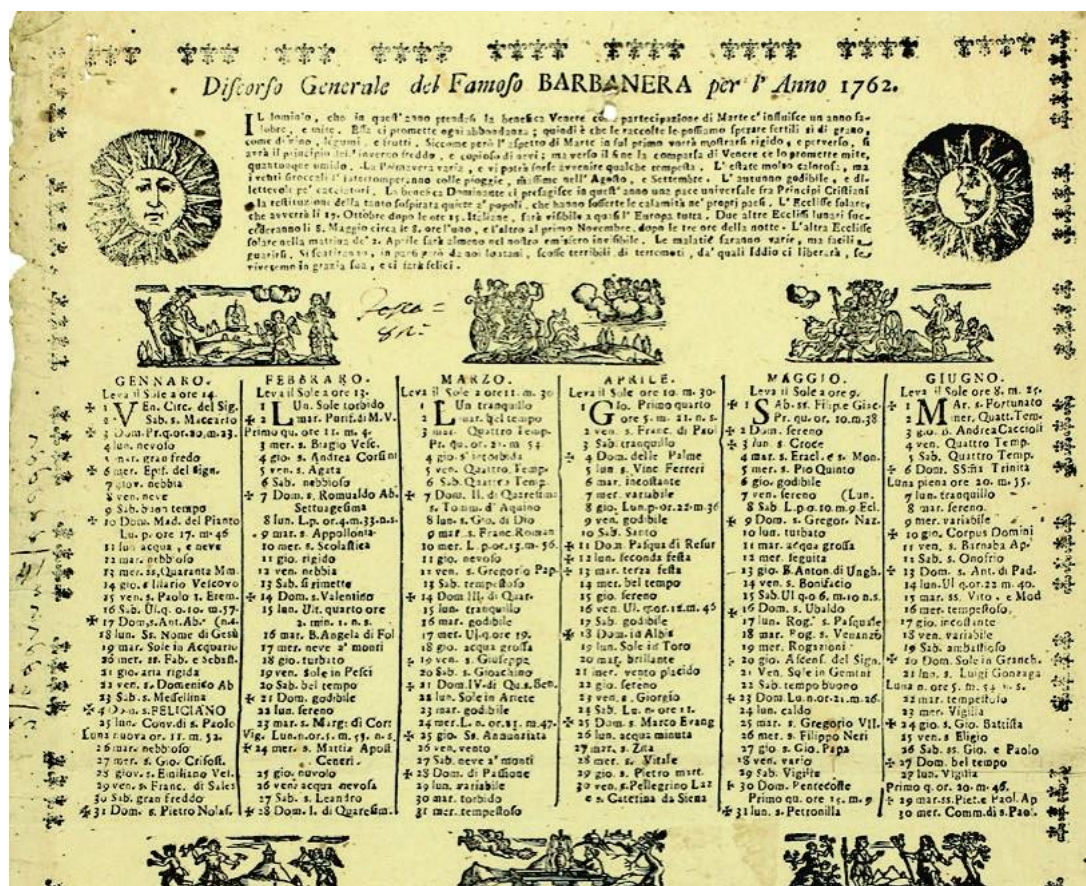 Discorso Generale del Famoso BARBANERA per l' Anno 1762.
IL dominio, che in quest' anno prenderà la benefica Venere con partecipazione di Marte c' influisce un anno sa-
lubre, e mite. Essa ci promette ogni abbondanza; quindi è che le raccolte le possiamo sperare fertili sì di grano,
come di vino, legumi, e frutti. Siccome però l' aspetto di Marte in sul primo vorrà mostrarsi rigido, e perverso, si
avrà il principio dell' inverno freddo, e copioso di nevi; ma verso il fine la comparsa di Venere ce lo promette mite,
quantunque umido. La Primavera varia, e vi potrà forse avvenire qualche tempesta. L' estate molto calorosa, ma
i venti siroccali l' interromperanno colle pioggie, massime nell' Agosto, e Settembre. L' autunno godibile, e di-
lettevole pe' cacciatori. La benefica Dominante ci presagisce in quest' anno una pace universale fra Principi Cristiani
e la restituzione della tanto sospirata quiete a' popoli, che hanno sofferte le calamità ne' proprj paesi. L' Ecclisse solare,
che avverrà li 17. Ottobre dopo le ore 15. Italiane, sarà visibile a quasi l' Europa tutta. Due altre Ecclissi lunari suc-
cederanno li 8. Maggio circa le 8. ore l' uno, e l' altro al primo Novembre. dopo le tre ore della notte. L' altra Ecclisse
solare nella mattina de' 2. Aprile sarà almeno nel nostro emisfero invisibile. Le malatie saranno varie, ma facili a
guarirsi. Si sentiranno, in parti però da noi lontani, scosse terribili di terremoti, da' quali Iddio ci liberarà, se
viveremo in grazia sua, e ci farà felici.
GENNARO.
Leva il Sole a ore 14.
1 VEn. Circ. del Sig.
2 Sab. s. Maccario
3 Dom. Pr. q. or. 20. m. 23.
4 lun. nevoso
5 mar. gran fredo
6 mer. Epif. del Sign.
7 giov. nebbia
8 ven. neve
9 Sab. buon tempo
10 Dom. Mad. del Pianto
Lu. p. ore 17. m. 46
11 lun acqua, e neve
12 mar. nebboso
13 mer. ss. Quaranta Mm.
14 gio. s Ilario Vescovo
15 ven. s. Paolo 1. Erem.
16 Sab. Ul. q. o. 10. m. 57.
17 Dom. s. Ant. Ab.
18 lun. Ss. Nome di Gesù
19 mar. Sole in Acquario
20 mer. ss. Fab. e Sebast.
21 gio. aria rigida
22 ven. s. Domenico Ab
23 Sab. s. Messellina
24 Dom. s. FELICIANO
25 lun. Conv. di s. Paolo
Luna nuova or. 11. m. 52.
26 mar. nebboso
27 mer. s. Gio. Crisost.
28 giov. s. Emiliano Vel.
29 ven. s. Franc. di Sales
30 Sab. gran freddo
31 Dom. s. Pietro Nolas.
FEBBRARO.
Leva il Sole a ore 13.
1 LUn. Sole torbido
2 mar. Purif. di M. V.
Primo qu. ore 11. m. 4.
3 mer. s. Biagio Vesc.
4 gio. s. Andrea Corsini
5 ven. s. Agata
6 Sab. nebbioso
7 Dom. s. Romualdo Ab.
Settuagesima
8 lun. L. p. or. 4. m. 33. n. s.
9 mar. s. Appollonia
10 mer. s. Scolastica
11 gio. rigido
12 ven. nebbia
13 Sab. si rimette
14 Dom. s. Valentino
15 lun. Ult. quarto ore
2. min. 1. n. s.
16 mar. B. Angela di Fol
17 mer. neve a' monti
18 gio. turbato
19 ven. Sole in Pesci
20 Sab. bel tempo
21 Dom. godibile
22 lun. sereno
23 mar. s. Marg: di Cort
Vig. Lun. n. or. 5. m. 55. n. s.
24 mer. s. Mattia Apost.
Ceneri.
25 gio. nuvolo
26 ven. acqua nevosa
27 Sab. s. Leandro
28 Dom. I. di Quaresim.
MARZO.
Leva il Sole a ore 11. m. 30
1 LUn tranquillo
2 mar. bel tempo
3 mar. Quattro Temp.
Pr. qu. or. 21. m 54
4 gio. s' intorbida
5 ven. Quattro Temp.
6 Sab. Quattro Temp.
7 Dom. II. di Quaresima
s. Tomm. d' Aquino
8 lun. s. Gio. di Dio
9 mar. s. Franc. Roman
10 mer. L. p. or. 13. m. 56.
11 gio. nevoso
12 ven. s. Gregorio Pap.
13 Sab. tempestoso
14 Dom III. di Quar.
15 lun. tranquillo
16 mar. godibile
17 mer. Ul. q. ore 19.
18 gio. acqua grossa
19 ven. s. Giuseppe
20 Sab. s. Gioachino
21 Dom. IV. di Qu. s. Ben.
22 lun. Sole in Ariete
23 mar. godibile
24 mer. L. n. or. 21. m. 47.
25 gio. Ss. Annunziata
26 ven. vento
27 Sab. neve a' monti
28 Dom. di Passione
29 lun. variabile
30 mar. torbido
31 mer. tempestoso
APRILE.
Leva il Sole ore 10. m. 30.
1 GIo. Primo quarto
ore 5. m. 21. n. s.
2 ven. s. Franc. di Paol
3 Sab. tranquillo
4 Dom. delle Palme
5 lun s. Vinc Ferreri
6 mar. incostante
7 mer. variabile
8 gio. Lun. p. or. 22. m. 36
9 ven. godibile
10 Sab. Santo
11 Dom. Pasqua di Resur
12 lun. seconda festa
13 mar. terza festa
14 mer. bel tempo
15 gio. sereno
16 ven. Ul. q. or. 12. m. 46
17 Sab. godibile
18 Dom. in Albis
19 lun. Sole in Toro
20 mar. brillante
21 mer. vento placido
22 gio. sereno
23 ven. s. Giorgio
24 Sab. Lu. n. ore 11.
25 Dom. s. Marco Evang
26 lun. acqua minuta
27 mar. s. Zita
28 mer. s. Vitale
29 gio. s. Pietro mart.
30 ven. s. Pellegrino Laz
e s. Caterina da Siena
MAGGIO.
Leva il Sole a ore 9.
1 SAb. ss. Filip. e Giac.
Pr. qu. or. 10. m. 38
2 Dom. sereno
3 lun s. Croce
4 mar. s. Eracl. e s. Mon.
5 mer. s. Pio Quinto
6 gio. godibile
7 ven. sereno (Lun.
8 Sab. L. p. o. 10. m. 9. Ecl.
9 Dom. s. Gregor. Naz.
10 lun. turbato
11 mar. acqua grossa
12 mer. seguita
13 gio. B. Anton. di Ungh.
14 ven. s. Bonifacio
15 Sab. Ul q. o 6. m. 10 n. s.
16 Dom. s. Ubaldo
17 lun. Rog. s. Pasquale
18 mar. Rog. s. Venanzo
19 mer. Rogazioni
20 gio. Ascens. del Sign.
21 Ven. Sole in Gemini
22 Sab. tempo buono
23 Dom Lu. n. or. 21. m. 26.
24 lun. caldo
25 mar. s. Gregorio VII.
26 mer. s. Filippo Neri
27 gio s. Gio. Papa
28 ven. vario
29 Sab. Vigilia
30 Dom. Pentecoste
Primo qu. ore 15. m. 9
31 lun. s. Petronilla
GIUGNO.
Leva il Sole ore 8. m. 25.
1 MAr. s. Fortunato
2 mer. Quatt. Tem.
3 gio. B. Andrea Caccioli
4 ven. Quattro Temp.
5 Sab. Quattro Temp.
6 Dom. SS:ma Trinità
Luna piena ore 20. m. 35.
7 lun. tranquillo
8 mar. sereno.
9 mer. variabile
10 gio. Corpus Domini
11 ven. s. Barnaba Ap.
12 Sab. s. Onofrio
13 Dom. s. Ant. di Pad.
14 lun. Ul q. or. 22 m. 40.
15 mar. ss. Vito. e Mod
16 mer. tempestoso.
17 gio. incostante
18 ven. variabile
19 Sab. ambastioso
20 Dom. Sole in Granch.
21 lun. s. Luigi Gonzaga
Luna n. ore 5. m. 54 n. s.
22 mar. tempestoso
23 mer. Vigilia
24 gio. s. Gio. Battista
25 ven. s Eligio
26 Sab. ss. Gio. e Paolo
27 Dom. bel tempo
28 lun. Vigilia
Primo q. or. 20. m. 46.
29 mar. ss. Piet. e Paol. Ap
30 mer. Comm. di s. Paol.